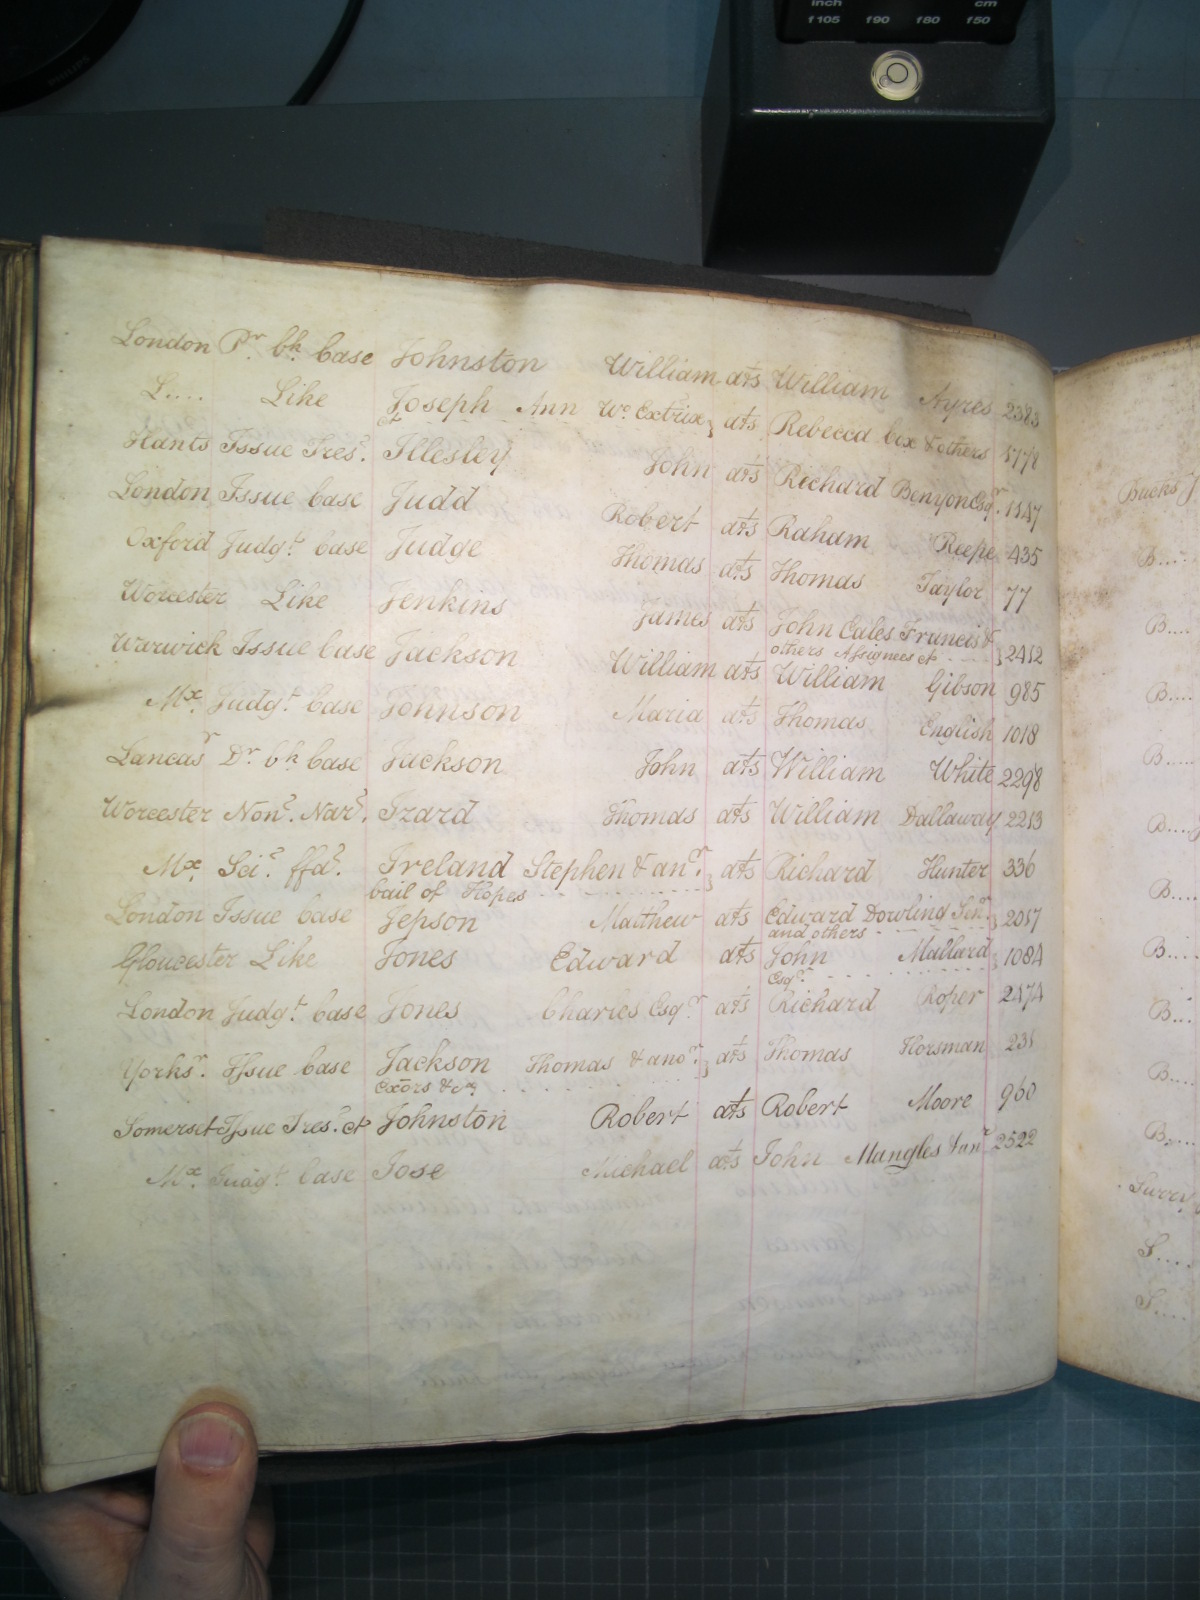 inch cm
f105 f90 f80 f50
PHILIPS
London Pr. bk. Case Johnston William ats William Ayres 2383
L.... Like Joseph Ann Wo. Extrix ats Rebecca Cox & others
&c
Hants Issue Tres?. Illesley John ats Richard Benyon Esqr. 1147
London Issue Case Judd Robert ats Raham Reepe 435
Oxford Judgt. Case Judge Thomas ats Thomas Taylor 77
Worcester Like Jenkins James ats John Cales Francis & 2412
others Assignees &c
Warwick Issue Case Jackson William ats William Gibson 985
Mx. Judgt. Case Johnson Maria ats Thomas English 1018
Lancasr Dr. bk. Case Jackson John ats William White 2298
Worcester Non?. Nar?. Izard Thomas ats William Dallaway 2213
Mx. Sci?. ffa?. Ireland Stephen & anr. ats Richard Hunter 336
bail of Hopes
London Issue Case Jepson Matthew ats Edward Dowling Senr. 2017
and others
Gloucester Like Jones Edward ats John Mallard 1084
Esqr.
London Judgt. Case Jones Charles Esqr. ats Richard Roper 2474
Yorksr. Issue Case Jackson Thomas & anor. ats Thomas Horsman 231
Exors &c.
Somerset Issue Tres?. &c Johnston Robert ats Robert Moore 960
Mx. Judgt. Case Jose Michael ats John Mangles & anr 2522
Bucks J
B....
B....
B....
B....
B....
B....
B....
B...
B....
B....
Surry
S....
S....